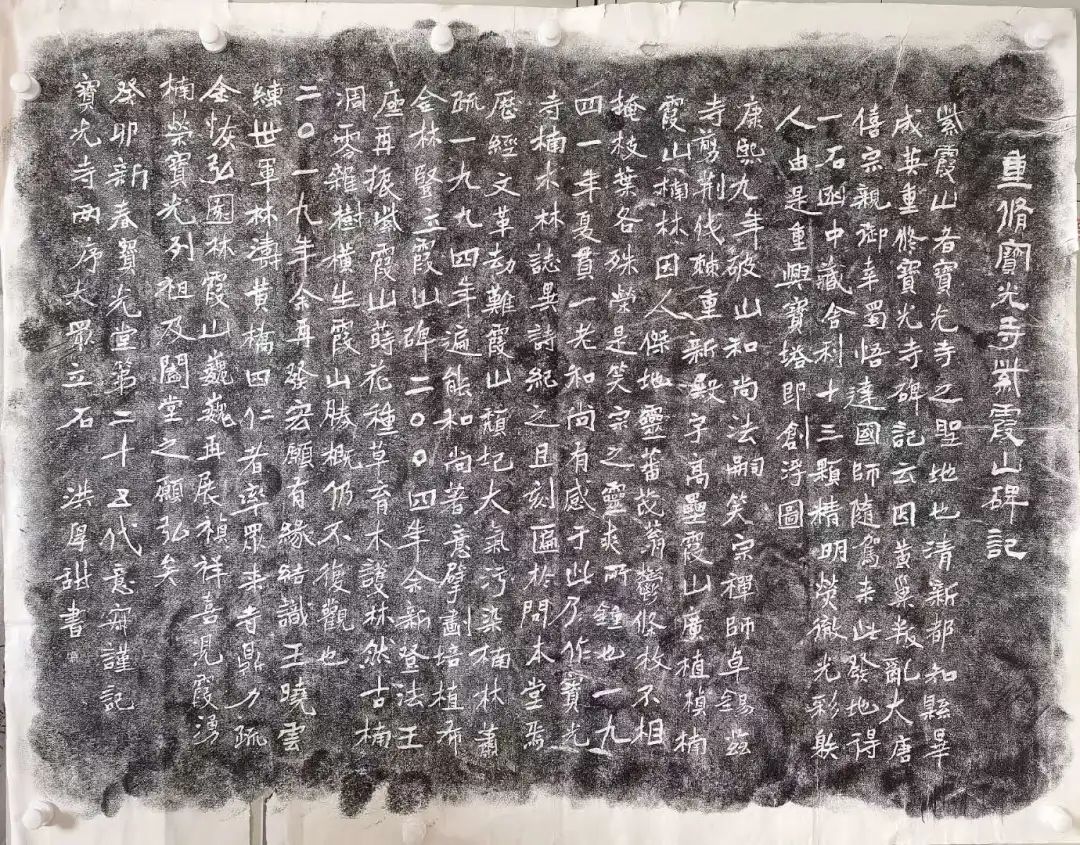 重脩寶光寺紫霞山碑記
紫霞山者寶光寺之聖地也清新都知縣畢
成英重修寶光寺碑記云因黄巢叛亂大唐
僖宗親御幸蜀悟達國師隨駕来此發地得
一石函中藏舍利十三顆精明熒徹光彩躲
人由是重興寶塔即創浮圖
康熙九年破山和尚法嗣笑宗禪師卓錫茲
寺剪荆伐棘重新殿宇高壘霞山廣植楨楠
霞山楠林因人傑地靈蕃茂蓊鬱條枚不相
掩枝葉各殊榮是笑宗之靈爽所鍾也一九
四一年夏貫一老和尚有感于此乃作寶光
寺楠木林誌異詩紀之且刻匾於問本堂焉
歷經文革劫難霞山頹圮大氣污染楠林蕭
疏一九九四年遍能和尚著意擘劃培植希
金林豎立霞山碑二〇〇四年余新登法王
座再振紫霞山蒔花種草育木護林然古楠
凋零雜樹横生霞山勝概仍不復觀也
二〇一九年余再發宏願有緣結識王曉雲
練世軍林濤黄橋四仁者率眾来寺鼎力疏
全恢弘園林霞山巍巍再展禎祥喜見霞湧
楠榮寶光列祖及闔堂之願弘矣
癸卯新春寳光堂第二十五代意寂謹記
寶光寺两序大眾立石 洪厚甜書